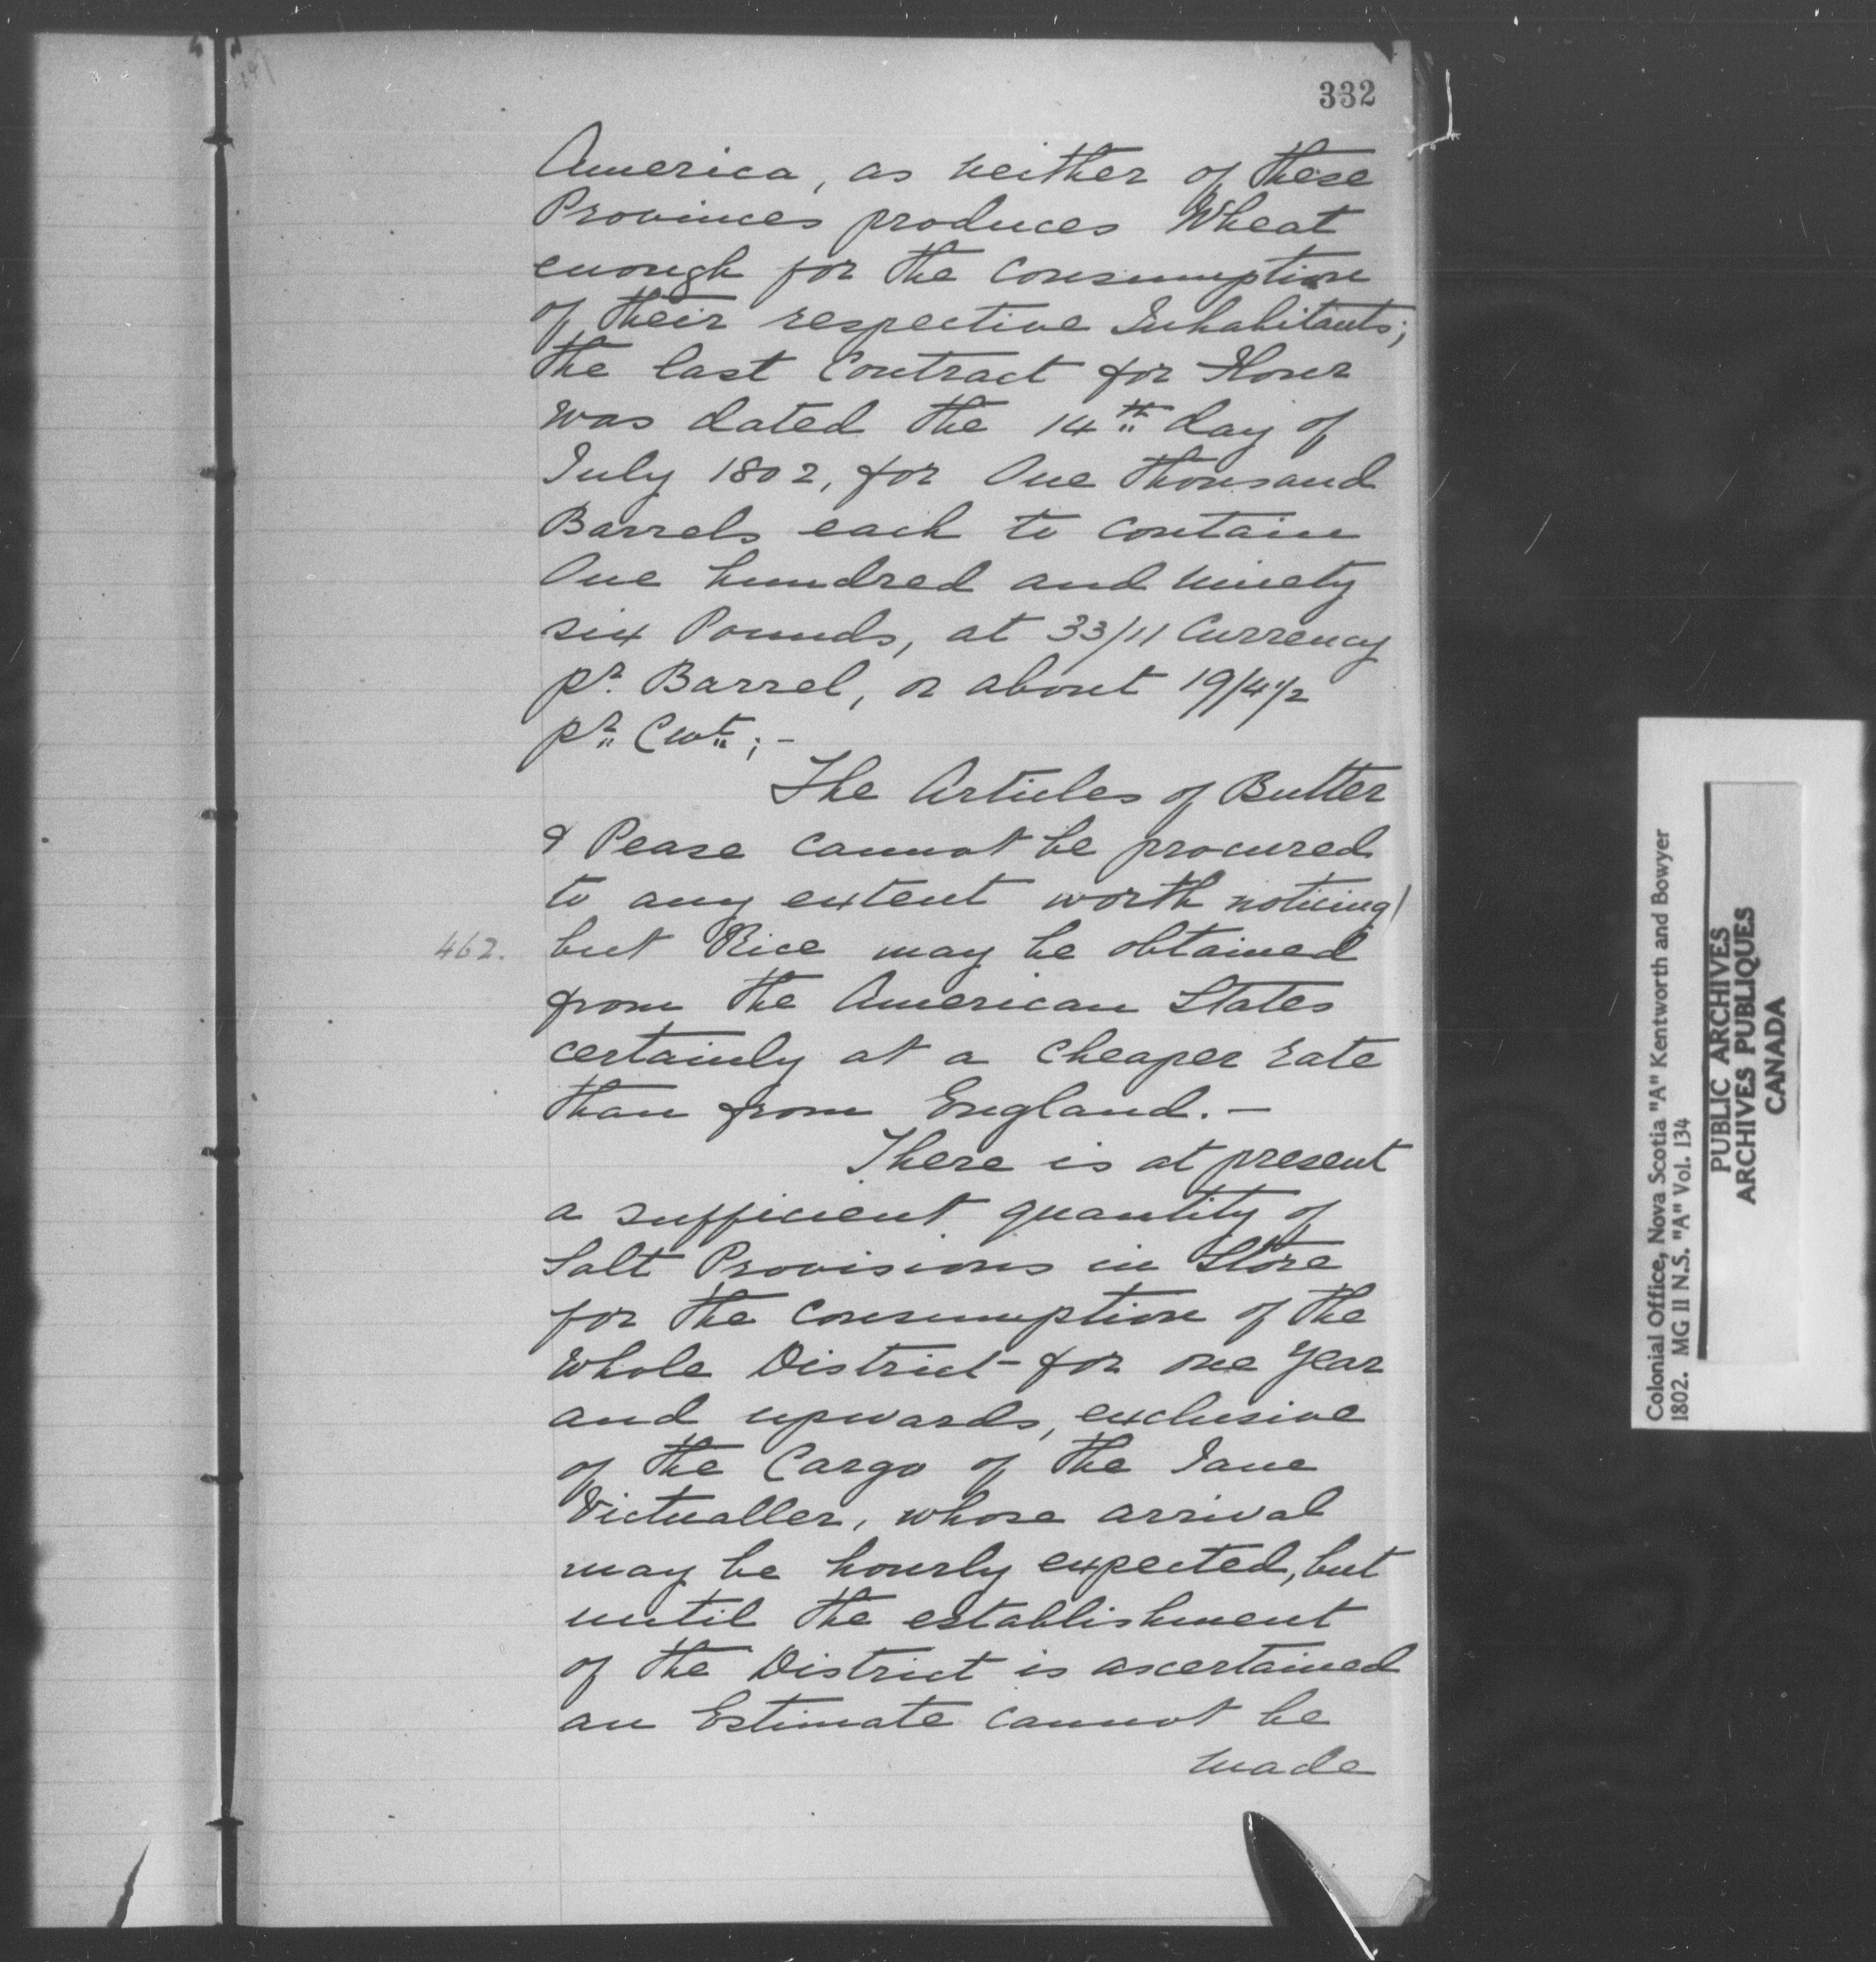 332
America, as neither of these
Provinces produces Wheat
enough for the Consumption
of their respective Inhabitants;
the last Contract for Flour
was dated the 14th day of
July 1802, for One thousand
Barrels each to contain
One hundred and ninety
six Pounds, at 33/11 Currency
pr. Barrel, or about 19/4½
pr. Cwt; -
The Articles of Butter
& Pease cannot be procured
to any extent worth noticing
462. but Rice may be obtained
from the American States
certainly at a cheaper rate
than from England. -
There is at present
a sufficient quantity of
Salt Provisions in Store
for the consumption of the
whole District for one year
and upwards, exclusive
of the Cargo of the Jane
Victualler, whose arrival
may be hourly expected, but
until the establishment
of the District is ascertained
an Estimate cannot be
made
Colonial Office, Nova Scotia "A" Kentworth and Bowyer
1802. MG II N.S. "A" Vol. 134
PUBLIC ARCHIVES
ARCHIVES PUBLIQUES
CANADA